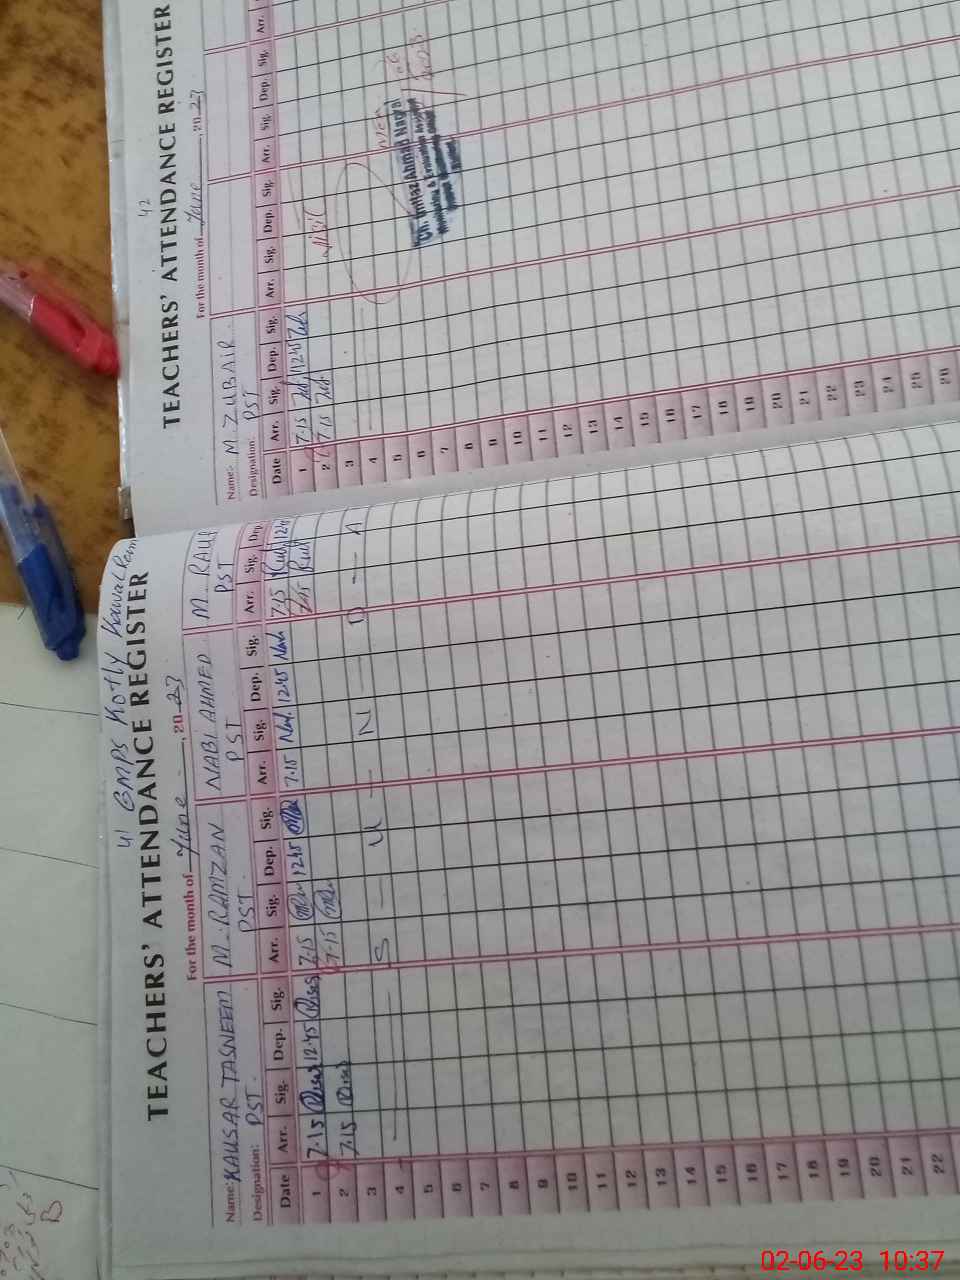 41 GMPS Kotly Kawal Ram
TEACHERS' ATTENDANCE REGISTER
For the month of June, 2023
Name: KAUSAR TASNEEM M. RAMZAN NABI AHMED M. RAUF
Designation: PST PST PST PST
Date Arr. Sig. Dep. Sig. Arr. Sig. Dep. Sig. Arr. Sig. Dep. Sig. Arr. Sig. Dep.
1 7.15 12.45 7.15 12.45 7.15 12.45 7.15
2 7.15 7.15 7.15
3
4 S — U — N — D — A
5
6
7
8
9
10
11
12
13
14
15
16
17
18
19
20
21
22
42
TEACHERS' ATTENDANCE REGISTER
For the month of June, 2023
Name:- M. ZUBAIR
Designation: PST
Date Arr. Sig. Dep. Sig. Arr. Sig. Dep. Sig. Arr. Sig. Dep. Sig. Arr.
1 7.15 12.45
2 7.15
3
4
5
6
7
8
9
10
11
12
13
14
15
16
17
18
19
20
21
22
23
24
25
26
Ch. Imtiaz Ahmad
Monitoring & Evaluation Assistant
02-06-23 10:37